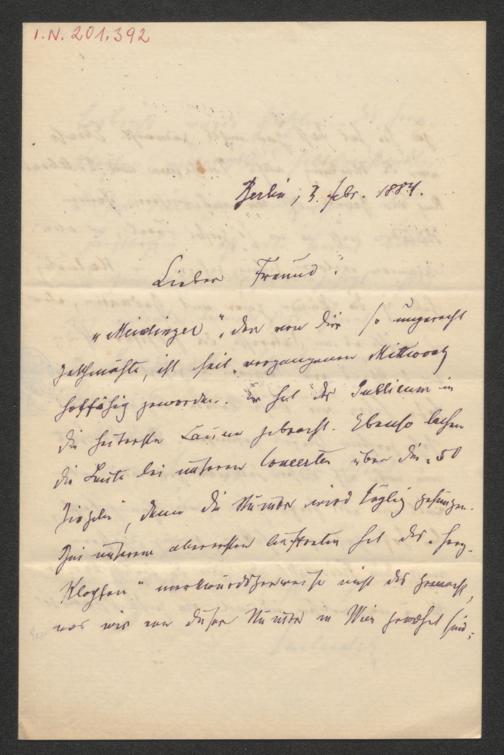 I.N. 201.392
Berlin, 3. Febr. 1884.
Lieber Freund!
„Meidinger", der von Dir so ungerecht
geschmähte, ist seit vergangenem Mittwoch
hoffähig geworden. Er hat das Publicum in
die heiterste Laune gebracht. Ebenso lachen
die Leute bei unseren Concerten über die „50
Ziegeln", denn die Numer wird täglich gesungen.
Bei unserem allerersten Auftreten hat das „Herz-
Klopfen" merkwürdigerweise nicht das gemacht,
was wir von dieser Numer in Wien gewöhnt sind;